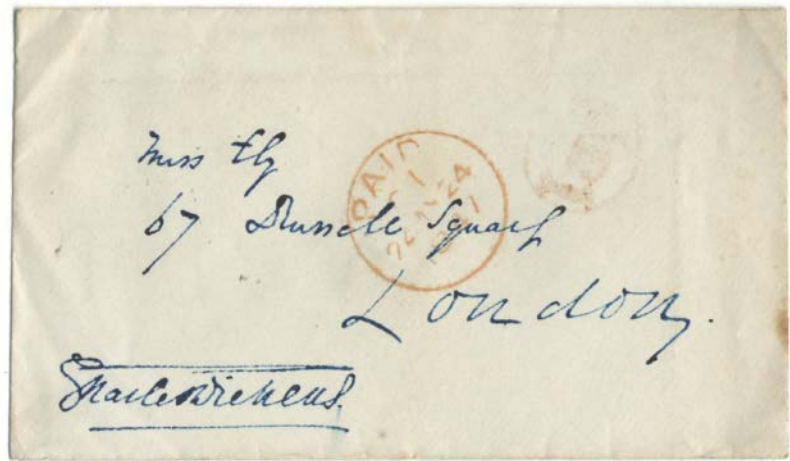 Miss Ely
67 Russell Square
London.
PAID
24
Charles Dickens.